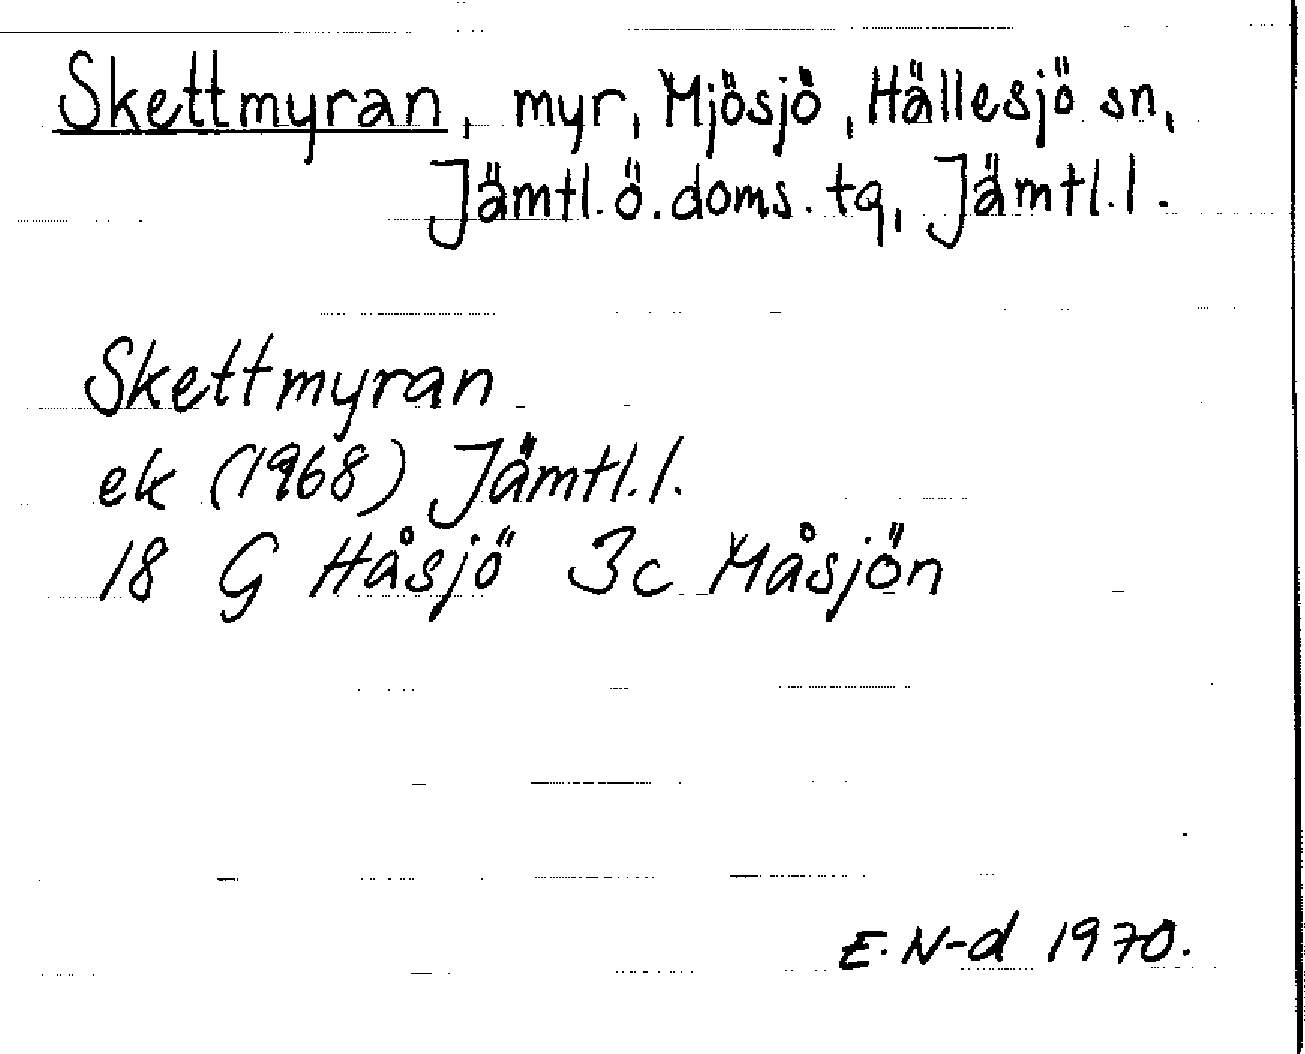 Skettmyran, myr, Mjösjö, Hällesjö sn,
Jämtl. ö. doms. tg, Jämtl. l.
Skettmyran
ek (1968) Jämtl. l.
18 G Håsjö 3c Måsjön
E. N-d 1970.